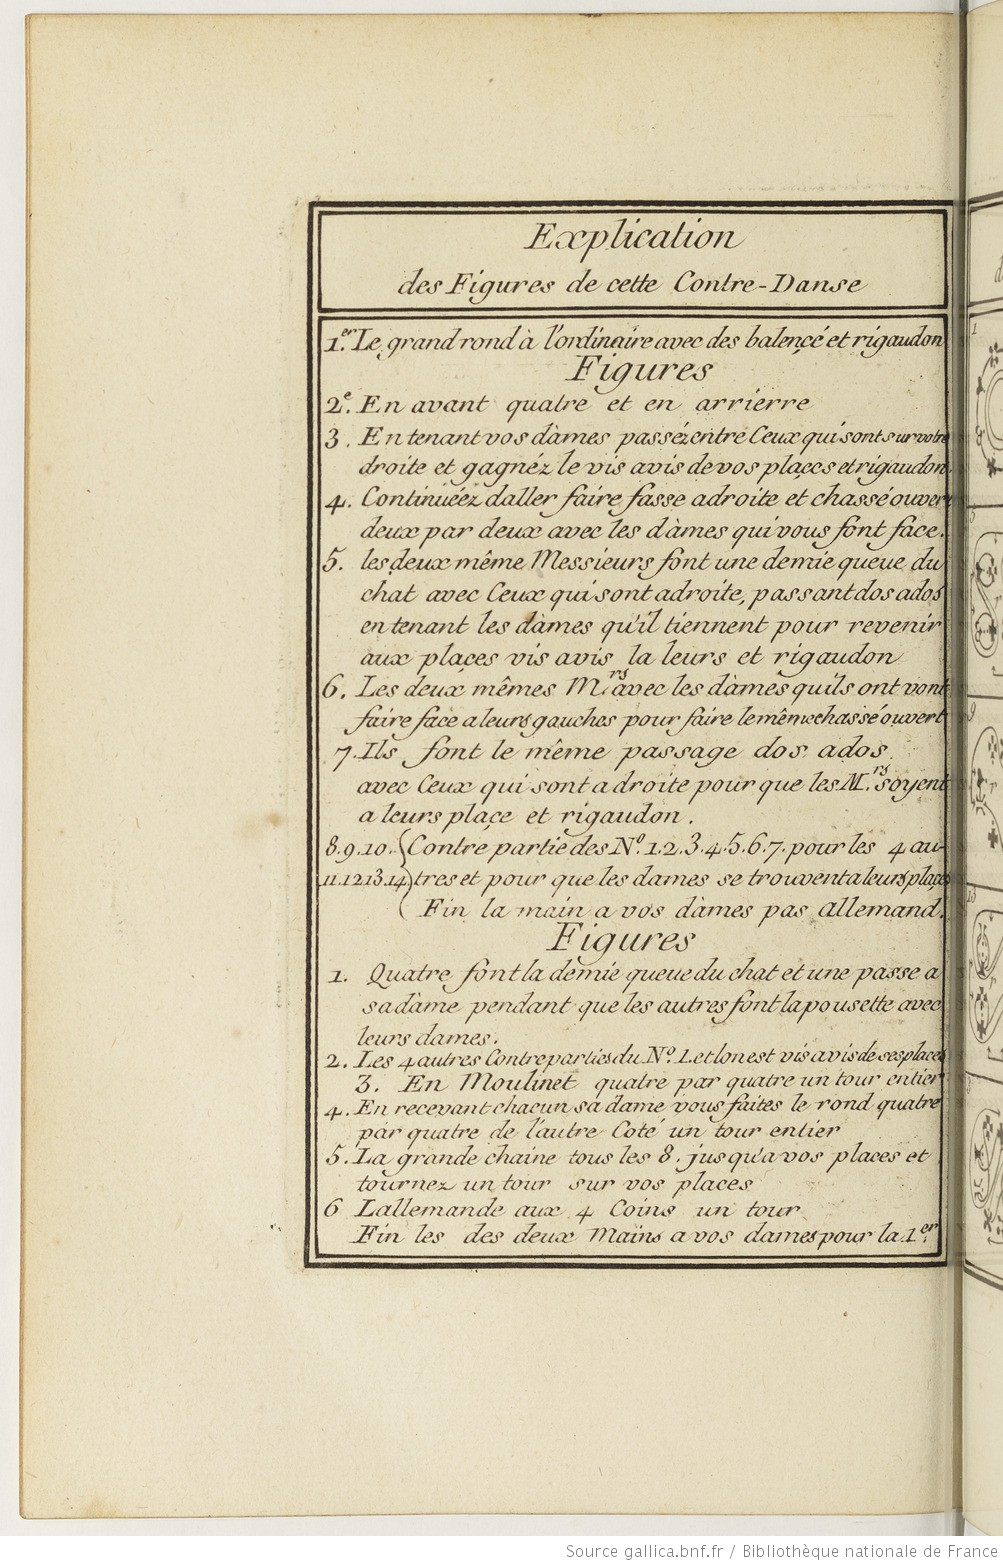 Explication
des Figures de cette Contre-Danse
1.er Le grand rond à l'ordinaire avec des balençé et rigaudon
Figures
2.e En avant quatre et en arrierre
3. En tenant vos dàmes passéz entre Ceux qui sont sur votre
droite et gagnéz le vis avis de vos plaçes et rigaudon
4. Continüéez daller faire fasse adroite et chassé ouvert
deux par deux avec les dàmes qui vous font face.
5. les deux même Messieurs font une demie queue du
chat avec Ceux qui sont adroite, passant dos ados
en tenant les dàmes qu'il tiennent pour revenir
aux plaçes vis avis la leurs et rigaudon
6. Les deux mêmes M.rs avec les dàmes quils ont vont
faire face a leurs gauches pour faire le même chassé ouvert
7. Ils font le même passage dos ados
avec Ceux qui sont a droite pour que les M.rs soyent
a leurs plaçe et rigaudon.
8.9.10. Contre partie des N.o 1.2.3.4.5.6.7. pour les 4 au-
11.12.13.14 tres et pour que les dames se trouvent a leurs plaçes
Fin la main a vos dàmes pas allemand.
Figures
1. Quatre font la demie queue du chat et une passe a
sa dàme pendant que les autres font la pousette avec
leurs dames.
2. Les 4 autres Contreparties du N.o 1. et lon est vis avis de ses places
3. En Moulinet quatre par quatre un tour entier
4. En recevant chacun sa dame vous faites le rond quatre
par quatre de l'autre Coté un tour entier
5. La grande chaine tous les 8. jusqu'a vos places et
tournez un tour sur vos places
6 Lallemande aux 4 Coins un tour
Fin les des deux Mains a vos dames pour la 1.er
Source gallica.bnf.fr / Bibliothèque nationale de France